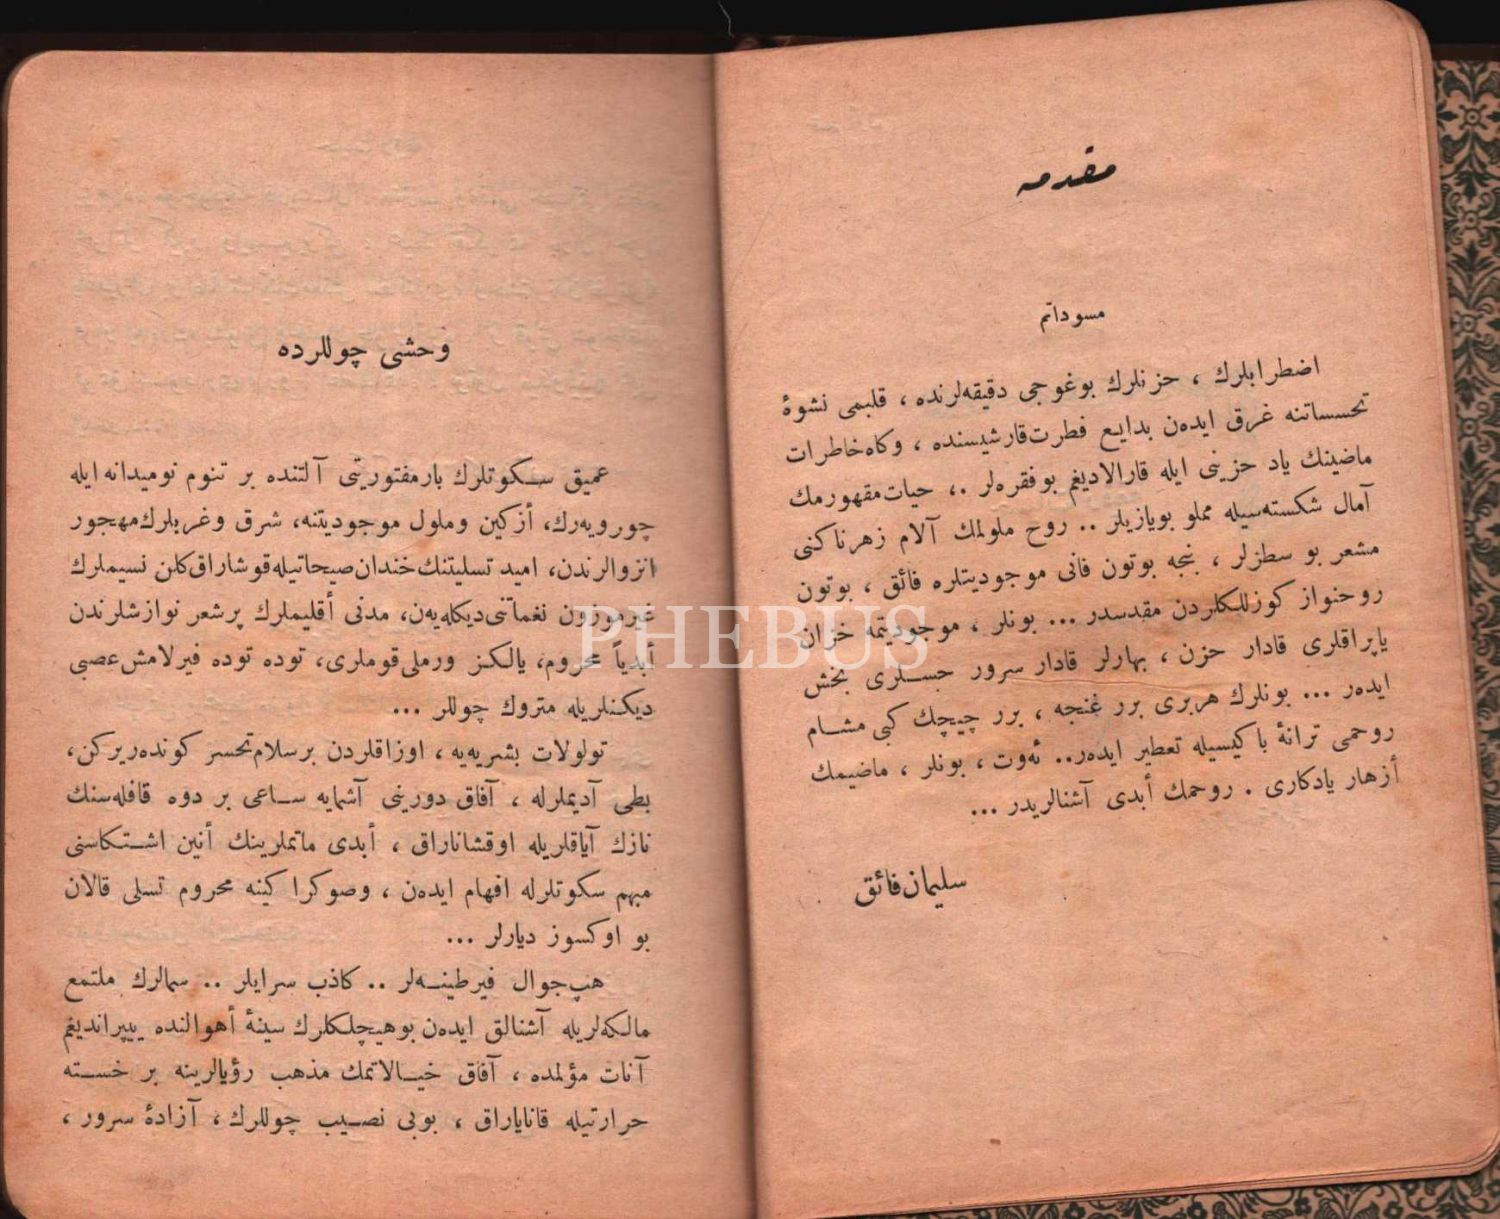 مقدمه
مسوداتم
اضطرابلرك ، حزنلرك بوغوجی دقیقه‌لرنده ، قلبمی نشوهٔ
تحسساتنه غرق ایده‌ن بدایع فطرت قارشیسنده ، وكاه خاطرات
ماضینك یاد حزینی ایله قارالادیغم بو فقره‌لر ،. حیات مقهورمك
آمال شكسته‌سیله مملو بویازیلر .. روح ملولمك آلام زهرناكنی
مشعر بو سطرلر ، بنجه بوتون فانی موجودیتلره فائق ، بوتون
روحنواز كوزللكلردن مقدسدر ... بونلر ، موجودیتمه خزان
یاپراقلری قادار حزن ، بهارلر قادار سرور حسلری بخش
ایده‌ر ... بونلرك هربری برر غنجه ، برر چیچك كبی مشام
روحمی ترانهٔ باكیسیله تعطیر ایده‌ر.. ئه‌وت ، بونلر ، ماضیمك
أزهار یادكاری . روحمك أبدی آشنالریدر ...
سلیمان فائق
وحشی چوللرده
عمیق سكوتلرك بارمفتوریتی آلتنده بر تنوم نومیدانه ایله
چورویه‌رك، أزكین وملول موجودیتنه، شرق وغربلرك مهجور
انزوالرندن، امید تسلیتنك خندان صیحاتیله قوشاراق كلن نسیملرك
غیرموزون نغماتنی دیكله‌یه‌ن، مدنی أقلیملرك پرشعر نوازشلرندن
أبدیاً محروم، یالكز ورملی قوملری، توده توده فیرلامش عصبی
دیكنلریله متروك چوللر ...
تولولات بشریه‌یه ، اوزاقلردن برسلام تحسر كونده‌ریركن،
بطی آدیملرله ، آفاق دورینی آشمایه ساعی بر دوه قافله‌سنك
نازك آیاقلریله اوقشاناراق ، أبدی ماتملرینك أنین اشتكاسنی
مبهم سكوتلرله افهام ایده‌ن ، وصوكرا كینه محروم تسلی قالان
بو اوكسوز دیارلر ...
هپ جوال فیرطینه‌لر .. كاذب سرابلر .. سمالرك ملتمع
مالكه‌لریله آشنالق ایده‌ن بوهیچلكلرك سینهٔ أهوالنده ییپراندیغم
آنات مؤلمده ، آفاق خیالاتمك مذهب رؤیالرینه بر خسته
حرارتیله قانایاراق ، بوبی نصیب چوللرك، آزادهٔ سرور ،
PHEBUS